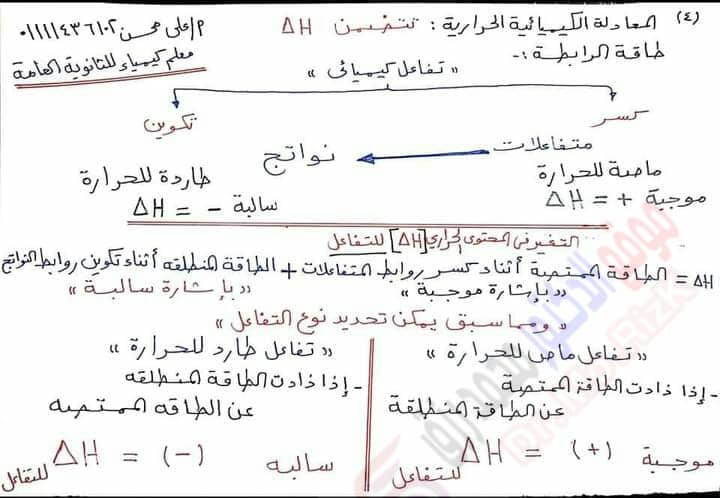 (٤) المعادلة الكيميائية الحرارية : تتضمن ΔH
م/على محسن ٠١١١١٤٣٦١٠٢
طاقة الرابطة :-
معلم كيمياء للثانوية العامة
« تفاعل كيميائى »
كسر
تكوين
متفاعلات
نواتج
ماصة للحرارة
طاردة للحرارة
موجبة + = ΔH
سالبة - = ΔH
التغير فى المحتوى الحرارى [ΔH] للتفاعل
ΔH = الطاقة الممتصة أثناء كسر روابط المتفاعلات + الطاقة المنطلقه أثناء تكوين روابط النواتج
« بإشارة موجبة »
« بإشارة سالبة »
« ومما سبق يمكن تحديد نوع التفاعل »
« تفاعل ماص للحرارة »
- إذا ذادت الطاقة الممتصة
عن الطاقة المنطلقة
موجبة (+) = ΔH للتفاعل
« تفاعل طارد للحرارة »
- إذا ذادت الطاقة المنطلقه
عن الطاقه الممتصه
سالبه (-) = ΔH للتفاعل